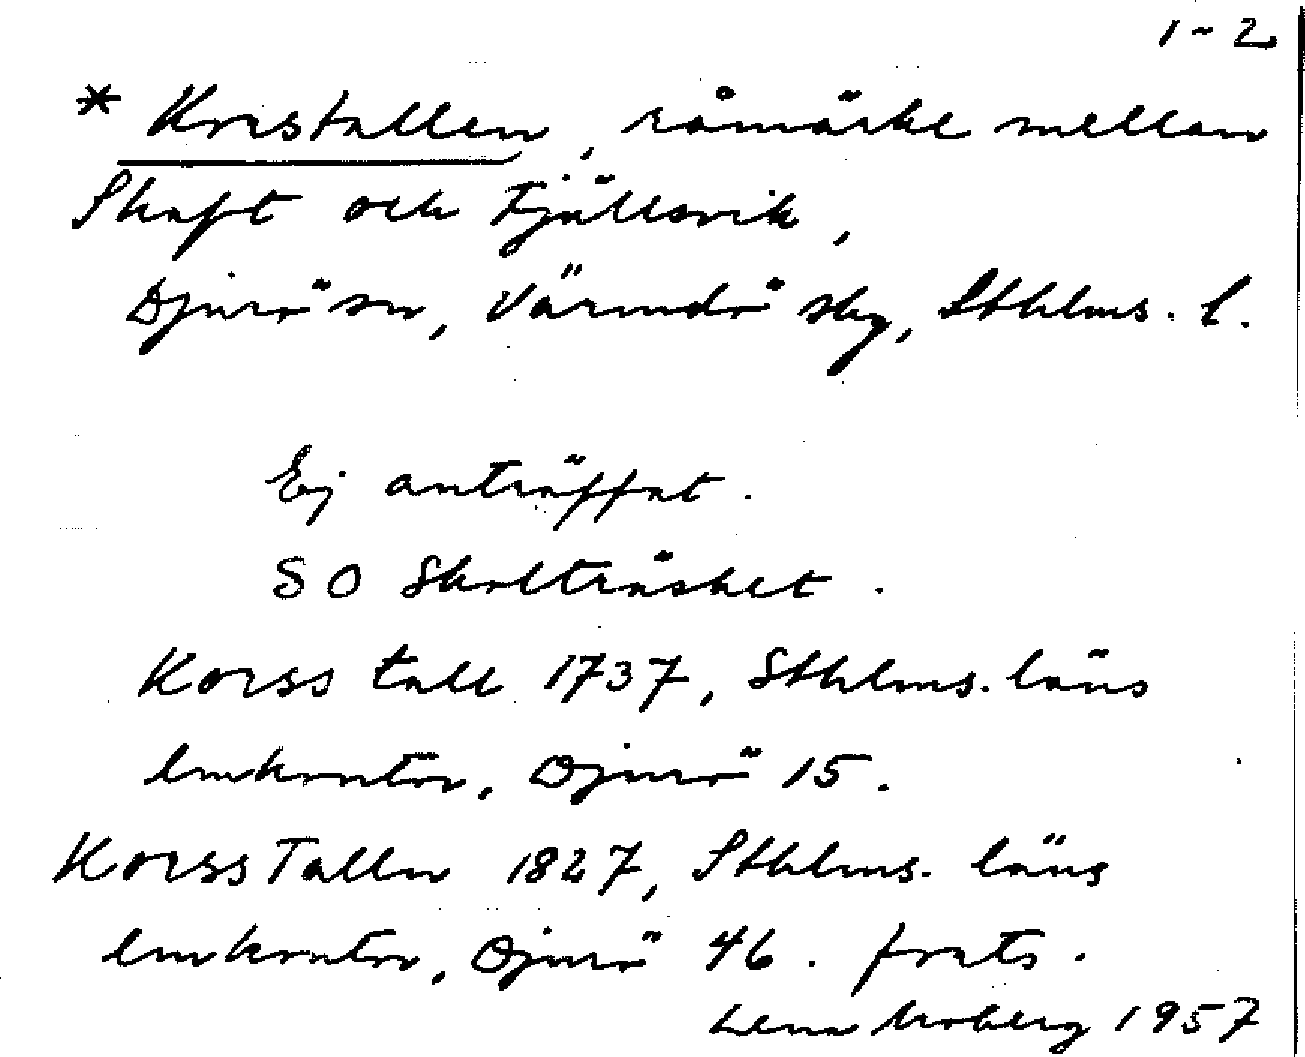 1-2
* Kristallen, råmärke mellan
Skaft och Fjällsvik,
Djurö sn, Värmdö skg, Sthlms. l.
Ej anträffat.
SO Skolträsket.
Korss tall 1737, Sthlms. läns
lmkontor, Djurö 15.
Korss Tallen 1827, Sthlms. läns
lmkontor, Djurö 46. forts.
Lena Moberg 1957